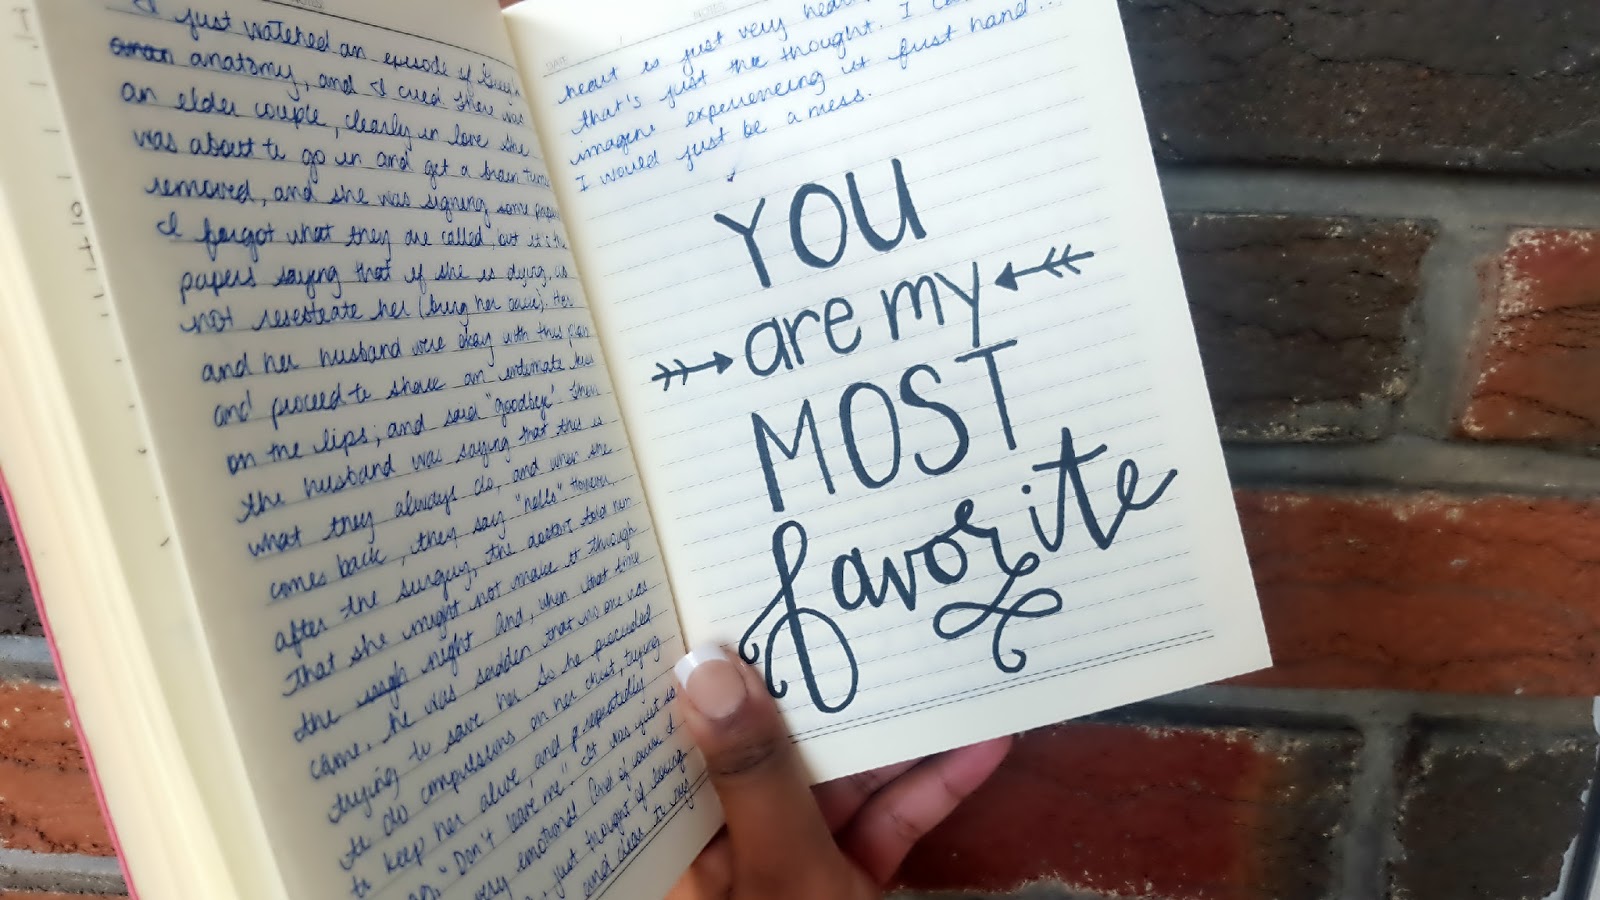 I just watched an episode of Grey's
anatomy, and I cried. There was
an elder couple, clearly in love. She
was about to go in and get a brain tumor
removed, and she was signing some papers
I forgot what they are called, but it's the
papers saying that if she is dying,
not (bring her back). Her
and her husband were okay with this plan
and proceed to share an intimate kiss
on the lips; and said "goodbye". Then
the husband was saying that this is
what they always do, and when she
comes back, they say "hello" However
after the surgery, the doctors told him
That she might not make it through
the night And, when that time
came, he was sadden that no one was
trying to save her. So he proceeded
to do compressions on her chest, trying
to keep her alive, and repeatedly
"Don't leave me". It was just so
very emotional! (and of course I
just thought of losing
and dear to my
NOTES
DATE
heart is just very
that's just the thought. I
imagine experiencing it first hand...
I would just be a mess.
YOU
are my
MOST
favorite